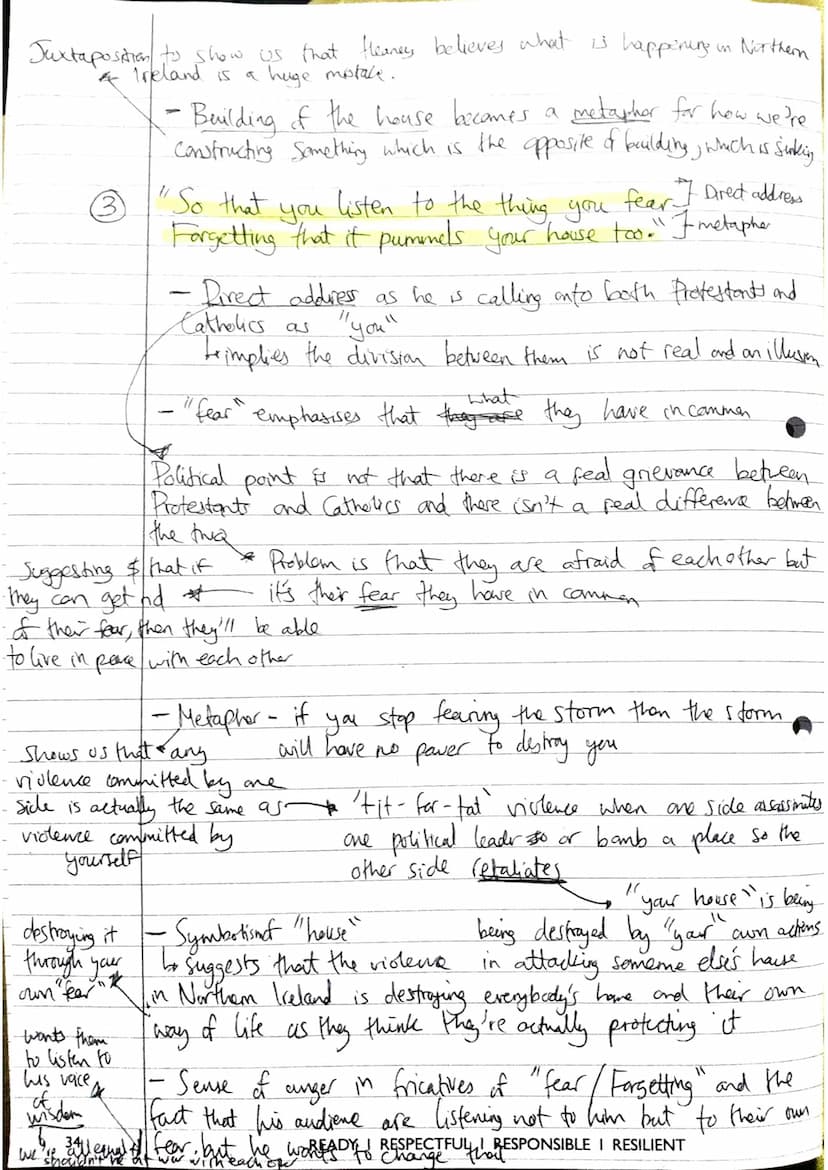 Juxtaposition to show us that Heaney believes what is happening in Northern
Ireland is a huge mistake.
- Building of the house becomes a metaphor for how we're
constructing something which is the opposite of building, which is sinking
③ "So that you listen to the thing you fear ] Direct address
Forgetting that it pummels your house too." ] metaphor
- Direct address as he is calling onto both Protestants and
Catholics as "you"
↳ implies the division between them is not real and an illusion
- "fear" emphasises that what they have in common
Political point is not that there is a real grievance between
Protestants and Catholics and there isn't a real difference between
the two
Problem is that they are afraid of each other but
it's their fear they have in common
Suggesting that if
they can get rid
of their fear, then they'll be able
to live in peace with each other
- Metaphor - if you stop fearing the storm then the storm
will have no power to destroy you
Shows us that any
violence committed by one
side is actually the same as
violence committed by
yourself
'tit-for-tat' violence when one side assassinates
one political leader or bomb a place so the
other side retaliates
"your house" is being
being destroyed by "your" own actions
- Symbolism of "house"
↳ suggests that the violence in attacking someone else's house
in Northern Ireland is destroying everybody's home and their own
way of life as they think they're actually protecting it
destroying it
through your
own "fear"
- Sense of anger in fricatives of "fear / Forgetting" and the
fact that his audience are listening not to him but to their own
fear, but he wants to change that
wants them
to listen to
his voice
of
wisdom
we're all equal
shouldn't be at war with each other
34
READY I RESPECTFUL I RESPONSIBLE I RESILIENT